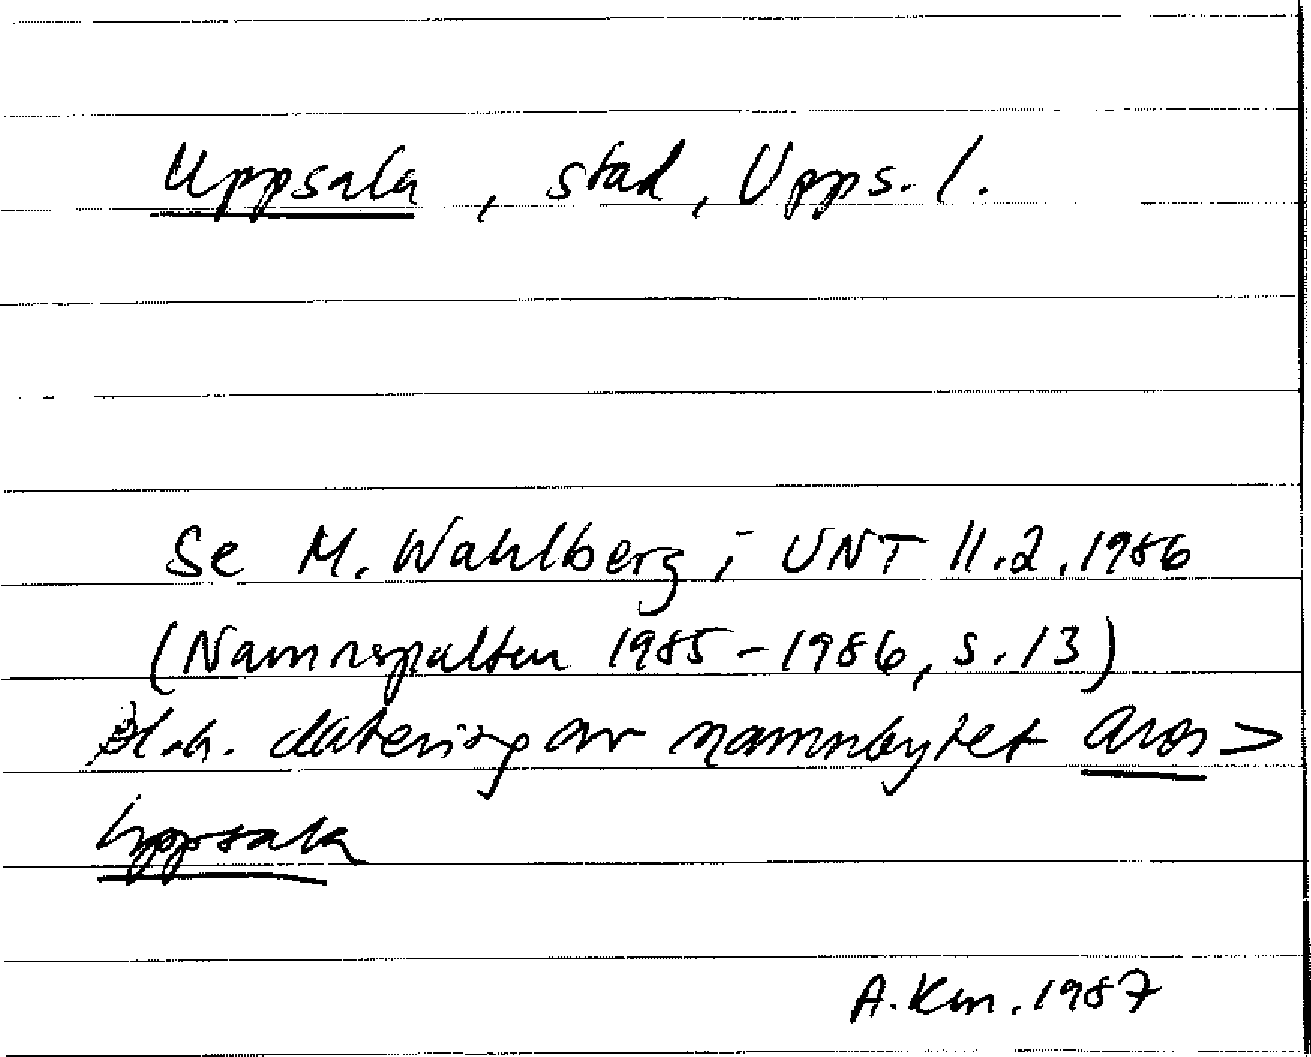 Uppsala, stad, Upps. l.
Se M. Wahlberg i UNT 11.2.1986
(Namnspalten 1985-1986, s. 13)
Bl.a. datering av namnbytet Aros >
Uppsala
A. Km. 1987